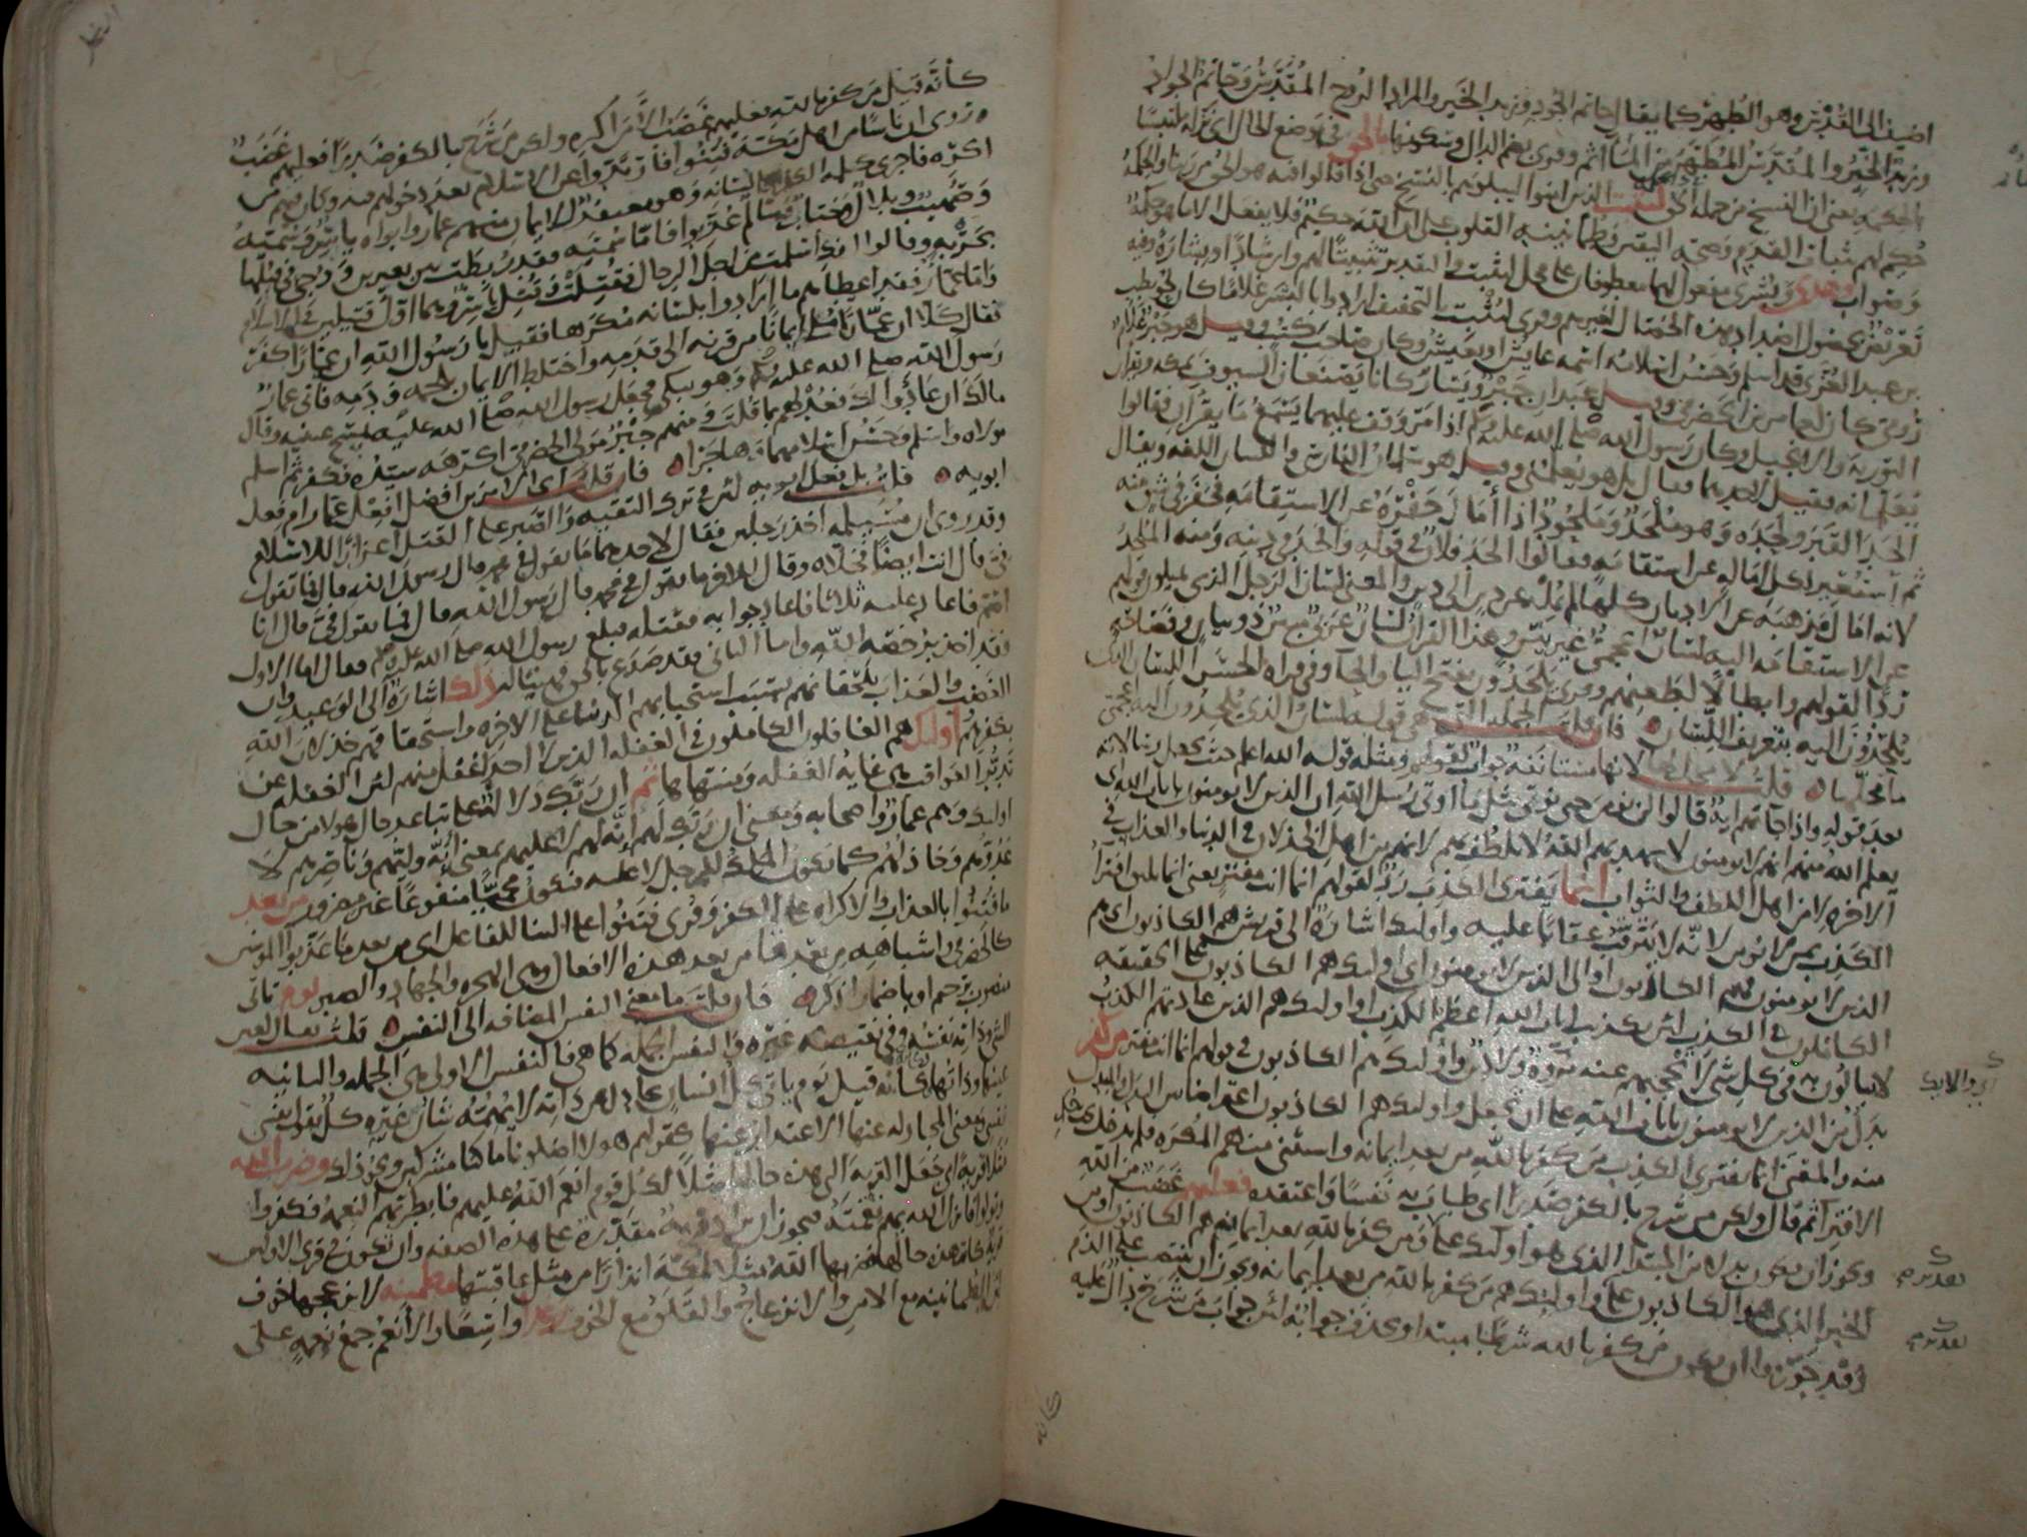 اضيف الى القدس وهو الطهر كما يقال حاتم الجود وزيد الخير والمراد الروح المقدس وحاتم الجواد
وزيد الخير والمقدس المطهر من المآثم وقرئ بضم الدال وسكونها بالحق في موضع الحال اى نزله ملتبسا
بالحكمه يعنى ان النسخ من جمله الحق ليثبت الذين امنوا ليبلوهم بالنسخ حتى اذا قالوا فيه هو الحق من ربنا والحكمة
حكم لهم بثبات القدم وصحه اليقين وطمانينه القلوب على ان الله حكيم فلا يفعل الا ما هو حكمة
وصواب وهدى وبشرى مفعول لهما معطوفان على محل ليثبت والتقدير تثبيتا لهم وارشادا وبشارة وفيه
تعريض بحصول اضداد هذه الخصال لغيرهم وقرئ ليثبت بالتخفيف ارادوا بالبشر غلاما كان لحويطب
بن عبد العزى قد اسلم وحسن اسلامه اسمه عايش او يعيش وكان صاحب كتب وقيل هو جبر غلام
رومى كان لعامر بن الحضرمى وقيل عبدان جبر ويسار كانا يصنعان السيوف بمكه ويقران
التوريه والانجيل وكان رسول الله صلى الله عليه وسلم اذا مر وقف عليهما يسمع ما يقران فقالوا
يعلمانه فقيل لاحدهما فقال بل هو يعلمنى وقيل هو سلمان الفارسى واللسان اللغه ويقال
الحد القبر ولحده وهو ملحد وملحود اذا امال حفره عن الاستقامه فحفر فى شق منه
ثم استعير لكل اماله عن استقامه فقالوا الحد فلان فى قوله والحد فى دينه ومنه الملحد
لانه امال مذهبه عن الاديان كلها لم يمله عن دين الى دين والمعنى لسان الرجل الذى يميلون قولهم
عن الاستقامه اليه لسان اعجمى غير بين وهذا القران لسان عربى مبين ذو بيان وفصاحه
ردا لقولهم وابطالا لطعنهم وقرئ يلحدون بفتح اليا والحا وفى قراه الحسن اللسان الذى
يلحدون اليه بتعريف اللسان فان قلت الجمله التى هى قوله لسان الذى يلحدون اليه اعجمى
ما محلها قلت لا محل لها لانها مستانفه جواب لقولهم ومثله قوله الله اعلم حيث يجعل رسالاته
بعد قوله واذا جاتهم ايه قالوا لن نومن حتى نوتى مثل ما اوتى رسل الله ان الذين لا يومنون بايات الله اى
يعلم الله منهم انهم لا يومنون لا يهديهم الله لا يلطف بهم لانهم من اهل الخذلان فى الدنيا والعذاب فى
الاخره لا من اهل اللطف والثواب انما يفترى الكذب رد لقولهم انما انت مفتر يعنى انما يليق افترا
الكذب بمن لا يومن لانه لا يترقب عقابا عليه واولئك اشارة الى قريش هم الكاذبون اى هم
الذين لا يومنون فهم الكاذبون او الى الذين لا يومنون اى اولئك هم الكاذبون على الحقيقه
الكاملون فى الكذب لان تكذيب ايات الله اعظم الكذب او اولئك هم الذين عادتهم الكذب
لا يبالون به فى كل شى لا تحجبهم عنه مروه ولا دين واولئك هم الكاذبون فى قولهم انما انت مفتر من كفر
بدل من الذين لا يومنون بايات الله على ان يجعل واولئك هم الكاذبون اعتراضا بين البدل والمبدل
منه والمعنى انما يفترى الكذب من كفر بالله من بعد ايمانه واستثنى منهم المكره فلم يدخل تحت حكم
الافترا ثم قال ولكن من شرح بالكفر صدرا اى طاب به نفسا واعتقده فعليهم غضب من الله
ويجوز ان يكون بدلا من المبتدا الذى هو اولئك على ومن كفر بالله بعد ايمانه هم الكاذبون او من
الخبر الذى هو الكاذبون على واولئك هم من كفر بالله من بعد ايمانه ويجوز ان ينتصب على الذم
وقد جوزوا ان يكون من كفر بالله شرطا مبتدا ويحذف جوابه لان جواب من شرح دال عليه
كانه قيل من كفر بالله فعليهم غضب الا من اكره ولكن من شرح بالكفر صدرا فعليهم غضب
روى ان ناسا من اهل مكه فتنوا فارتدوا عن الاسلام بعد دخولهم فيه وكان فيهم من
اكره فاجرى كلمه الكفر على لسانه وهو معتقد للايمان منهم عمار وابواه ياسر وسميه
وصهيب وبلال وخباب وسالم عذبوا فاما سميه فقد ربطت بين بعيرين ووجى فى قبلها
بحربه وقالوا انك اسلمت من اجل الرجال فقتلت وقتل ياسر وهما اول قتيلين فى الاسلام
واما عمار فقد اعطاهم ما ارادوا بلسانه مكرها فقيل يا رسول الله ان عمارا كفر
فقال كلا ان عمارا ملئ ايمانا من قرنه الى قدمه واختلط الايمان بلحمه ودمه فاتى عمار
رسول الله صلى الله عليه وسلم وهو يبكى فجعل رسول الله صلى الله عليه يمسح عينيه وقال
مالك ان عادوا لك فعد لهم بما قلت ومنهم جبر مولى الحضرمى اكرهه سيده فكفر ثم اسلم
مولاه واسلم وحسن اسلامهما وهاجرا فان قلت اى الامرين افضل افعل عمار ام فعل
ابويه قلت بل فعل ابويه لان فى ترك التقيه والصبر على القتل اعزازا للاسلام
وقد روى ان مسيلمه اخذ رجلين فقال لاحدهما ما تقول فى محمد قال رسول الله قال فما تقول
فى قال انت ايضا فخلاه وقال للاخر ما تقول فى محمد قال رسول الله قال فما تقول فى قال انا
اصم فاعاد عليه ثلاثا فاعاد جوابه فقتله فبلغ رسول الله صلى الله عليه وسلم فقال اما الاول
فقد اخذ برخصه الله واما الثانى فقد صدع بالحق فهنيئا له ذلك اشارة الى الوعيد وان
الغضب والعذاب يلحقانهم بسبب استحبابهم الدنيا على الاخره واستحقاقهم خذلان الله
بكفرهم اولئك هم الغافلون الكاملون فى الغفله الذين لا احد اغفل منهم لان الغفله عن
تدبر العواقب هى غايه الغفله ومنتهاها ثم ان ربك دلاله على تباعد حال هولا من حال
اولئك وهم عمار واصحابه ومعنى ان ربك لهم انه لهم لا عليهم بمعنى انه وليهم وناصرهم لا
عدوهم وخاذلهم كما يكون الملك للرجل لا عليه فيكون محميا منفوعا غير مضرور من بعد
ما فتنوا بالعذاب والاكراه على الكفر وقرئ فتنوا على البنا للفاعل اى من بعد ما عذبوا المومنين
كالحضرمى واشباهه من بعدها من بعد هذه الافعال وهى الهجره والجهاد والصبر يوم تاتى
منصوب برحيم او باضمار اذكر فان قلت ما معنى النفس المضافه الى النفس قلت يقال لعين
الشى وذاته نفسه وفى نقيضه غيره والنفس الجمله كما هى فالنفس الاولى هى الجمله والثانيه
عينها وذاتها فكانه قيل يوم ياتى كل انسان يجادل عن ذاته لا يهمه شان غيره كل يقول نفسى
نفسى ومعنى المجادله عنها الاعتذار عنها كقولهم هولا اضلونا ما كنا مشركين ونحو ذلك وضرب الله
مثلا قريه اى جعل القريه التى هذه حالها مثلا لكل قوم انعم الله عليهم فابطرتهم النعمه فكفروا
وتولوا فانزل الله بهم نقمته فيجوز ان تراد قريه مقدره على هذه الصفه وان تكون فى قرى الاولين
قريه كانت هذه حالها فضربها الله مثلا لمكه انذارا من مثل عاقبتها مطمئنه لا يزعجها خوف
لان الطمانينه مع الامن والانزعاج والقلق مع الخوف رغدا واسعا والانعم جمع نعمه على